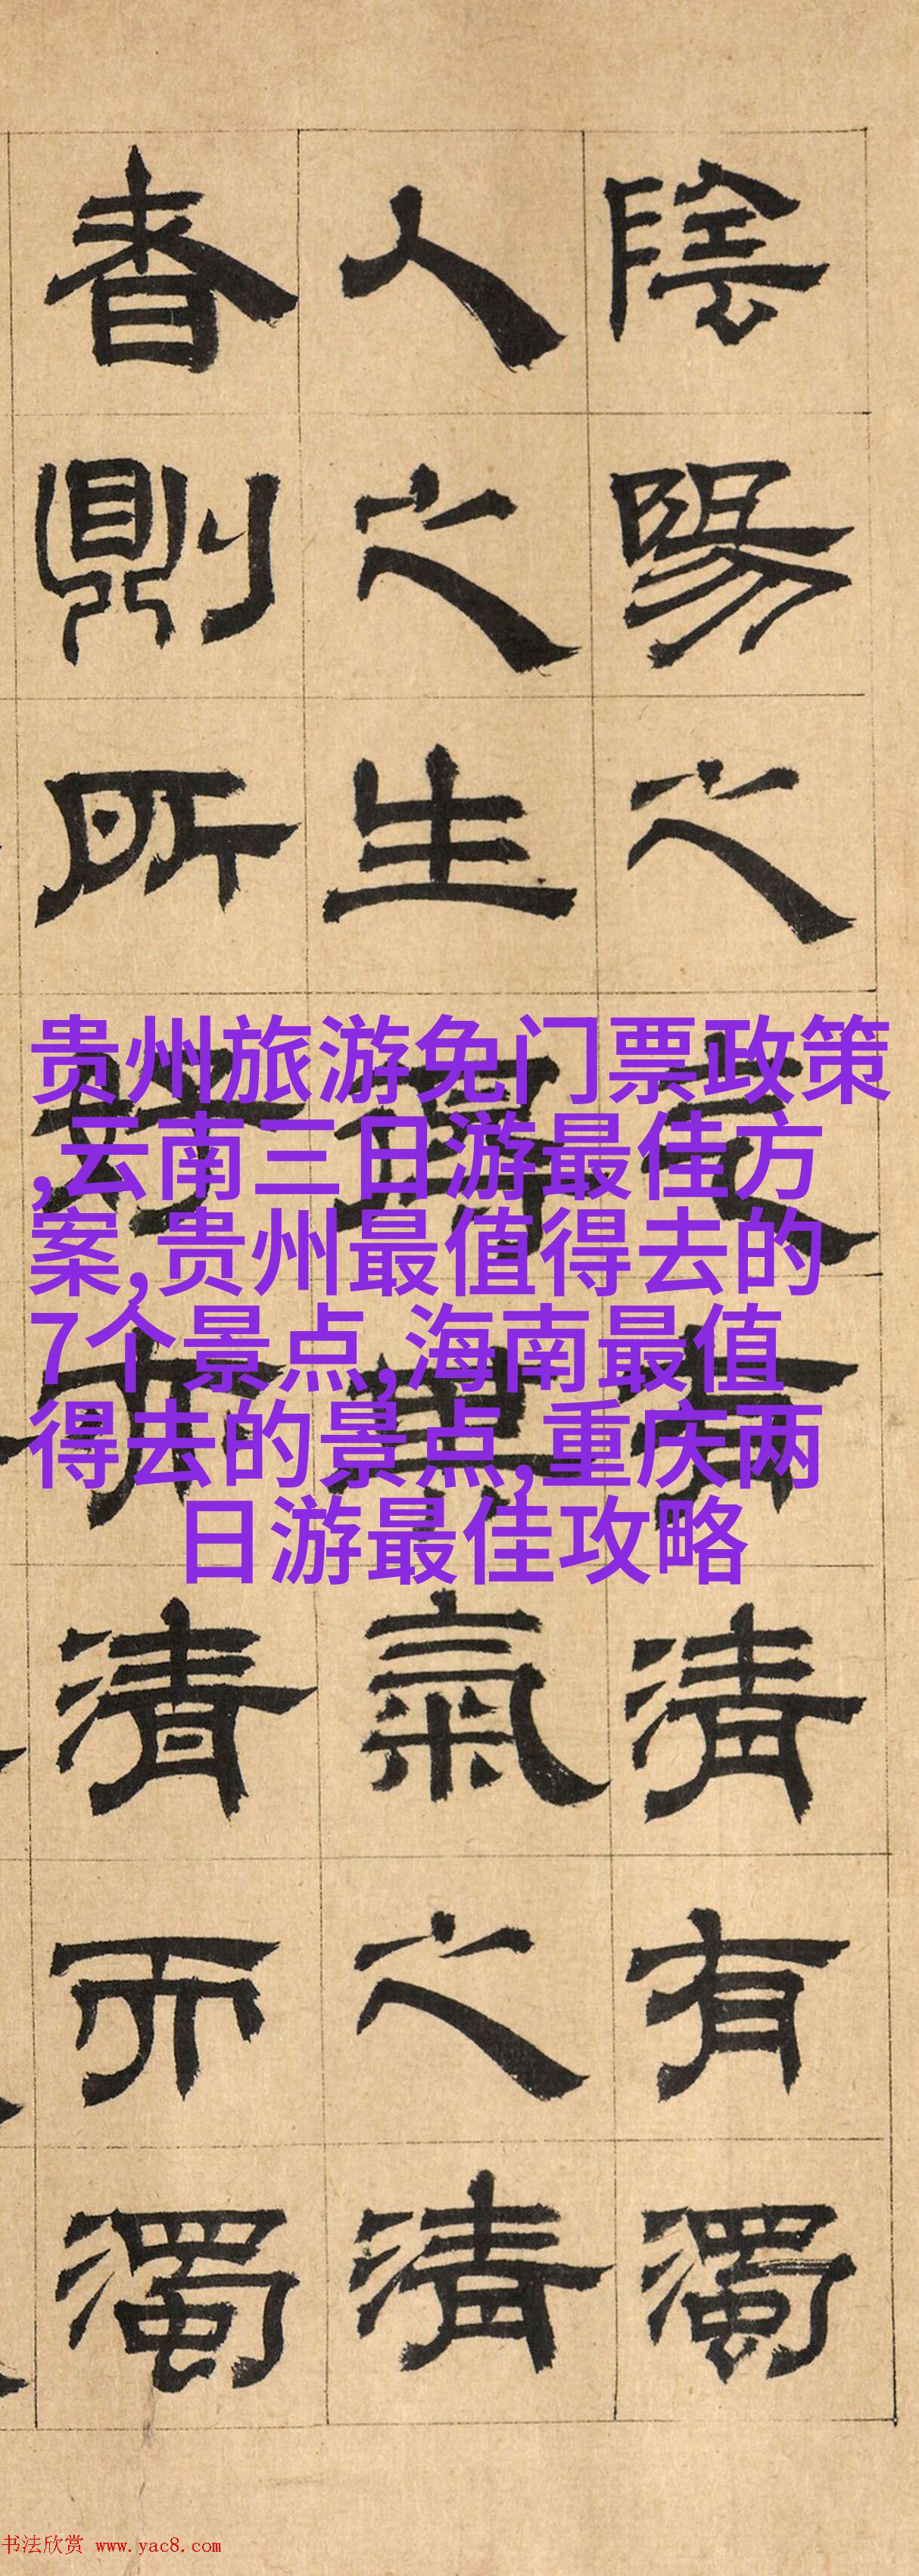 陰陽之氣有清有濁
人之生得其氣之清
者則所好亦清而濁
贵州旅游免门票政策
,云南三日游最佳方
案,贵州最值得去的
7个景点,海南最值
得去的景点,重庆两
日游最佳攻略
书法欣赏 www.yac8.com